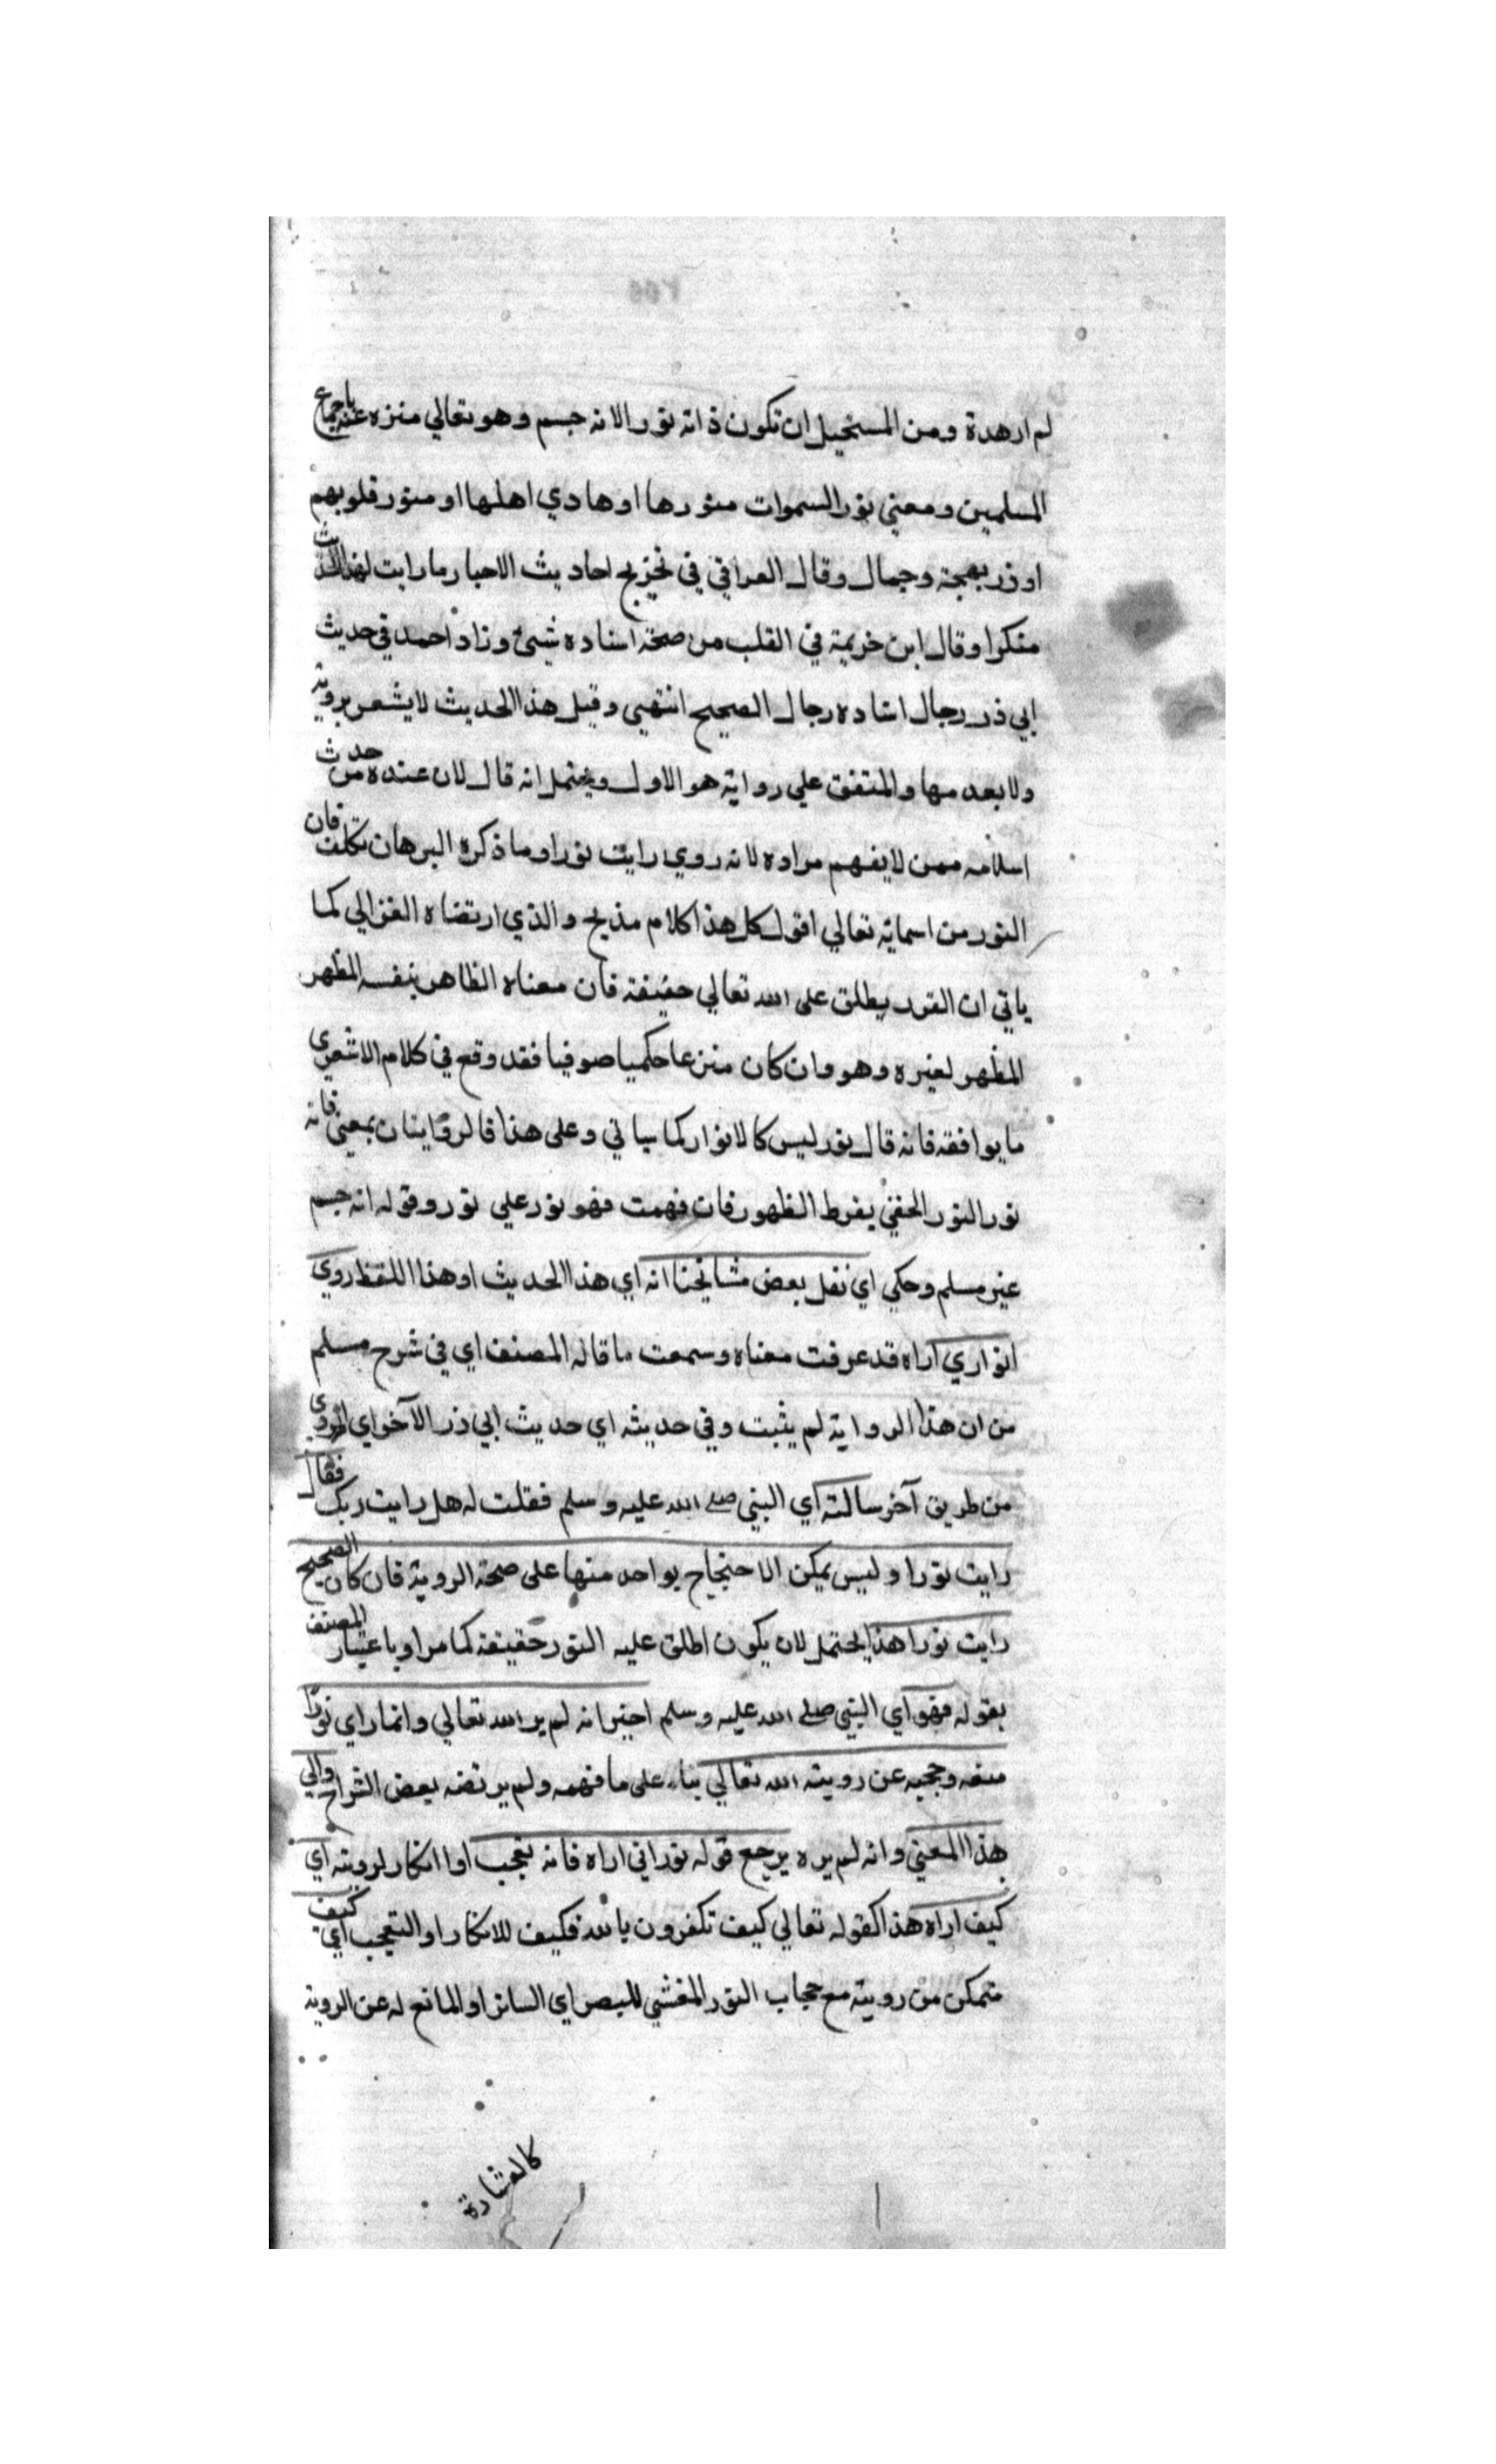 لم ار هدة ومن المستحيل ان تكون ذاته نورا لانه جسم وهو تعالي منزه عنه باجماع
المسلمين ومعني نور السموات منورها او هادي اهلها او منور قلوبهم
او ذر بهجة وجمال وقال العراقي في تخريج احاديث الاحيا رما رايت لهذا الحديث
منكرا وقال ابن خزيمة في القلب من صحة اسناده شيئ وزاد احمد في حديث
ابي ذر رجال اسناده رجال الصحيح انتهي وقيل هذا الحديث لا يشعر بروية
ولا بعد مها والمتفق علي رواية هو الاول ويحتمل انه قال لان عنده من حدث
اسلامه ممن لا يفهم مراده لانه روي رايت نورا وما ذكره البرهان تكلف فان
النور من اسمائه تعالي اقول كل هذا كلام مذبح والذي ارتضاه الغزالي كما
ياتي ان النور يطلق على الله تعالي حقيقة فان معناه الظاهر بنفسه المظهر
المظهر لغيره وهو وان كان منزعا حكميا صوفيا فقد وقع في كلام الاشعري
ما يوافقه فانه قال نور ليس كالانوار كما سياتي وعلى هذا فالروايتان بمعني فانه
نور النور الخفي بفرط الظهور فان فهمت فهو نور علي نور وقوله انه جسم
غير مسلم وحكي اي نقل بعض مشائخنا انه اي هذا الحديث او هذا اللفظ روي
انواري اراه قد عرفت معناه وسمعت ما قاله المصنف اي في شرح مسلم
من ان هذا الرواية لم يثبت وفي حديثه اي حديث ابي ذر الآخر اي المروي
من طريق آخر سالته اي النبي صلى الله عليه وسلم فقلت له هل رايت ربك فقال
رايت نورا وليس يمكن الاحتجاج بواحد منها على صحة الروية فان كان الصحيح
رايت نورا هذا يحتمل لان يكون اطلق عليه النور حقيقة كما مر او باعتبار المصنف
بقوله فهو اي النبي صلى الله عليه وسلم اخبر انه لم ير الله تعالي وانما راي نورا
منعه وحجبه عن رويته الله تعالي بناء على ما فهمه ولم يرتضه بعض الشراح والي
هذا المعني وانه لم يره يرجع قوله نور اني اراه فانه تعجب او انكار لرويته اي
كيف اراه هذا كقوله تعالي كيف تكفرون بالله فكيف للانكار او التعجب اي كيف
متمكن من رويته مع حجاب النور المغشي للبصر اي الساتر او المانع له عن الروية
كالغشاوة